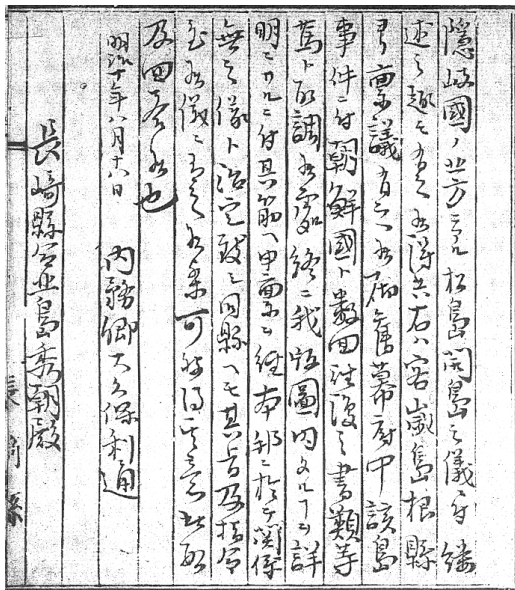 隱岐國ノ北方ニアル松島開島之儀ニ付縷
述之趣モ有之候得共右ハ客歳島根縣
ヨリ稟議有之候節舊幕府中該島
事件ニ付朝鮮國ト數回往復之書類等
篤ト取調候處終ニ我版圖内 詳
明 ニ付其筋ヘ申稟之經本邦ニ於テ關係
無之儀ト治定致シ同縣ヘモ其旨及指令
候儀ニ有之候条可 得其意此段
及回答候也
明治十年八月十六日
内務卿大久保利通
長崎縣令北島秀朝殿
長崎縣